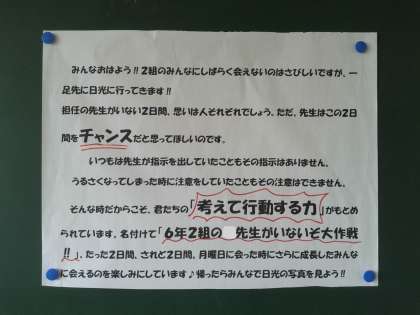 みんなおはよう!!2組のみんなにしばらく会えないのはさびしいですが、一
足先に日光に行ってきます!!
担任の先生がいない2日間、思いは人それぞれでしょう。ただ、先生はこの2日
間をチャンスだと思ってほしいのです。
いつもは先生が指示を出していたこともその指示はありません。
うるさくなってしまった時に注意をしていたこともその注意はできません。
そんな時だからこそ、君たちの「考えて行動する力」がもとめ
られています。名付けて「6年2組の 先生がいないぞ大作戦
!!」、たった2日間、されど2日間、月曜日に会った時にさらに成長したみんな
に会えるのを楽しみにしています♪帰ったらみんなで日光の写真を見よう!!